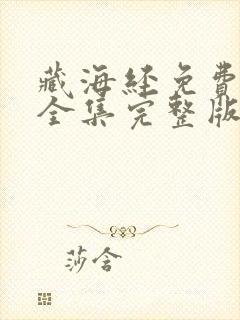 藏海经免費
全集完整版
莎含